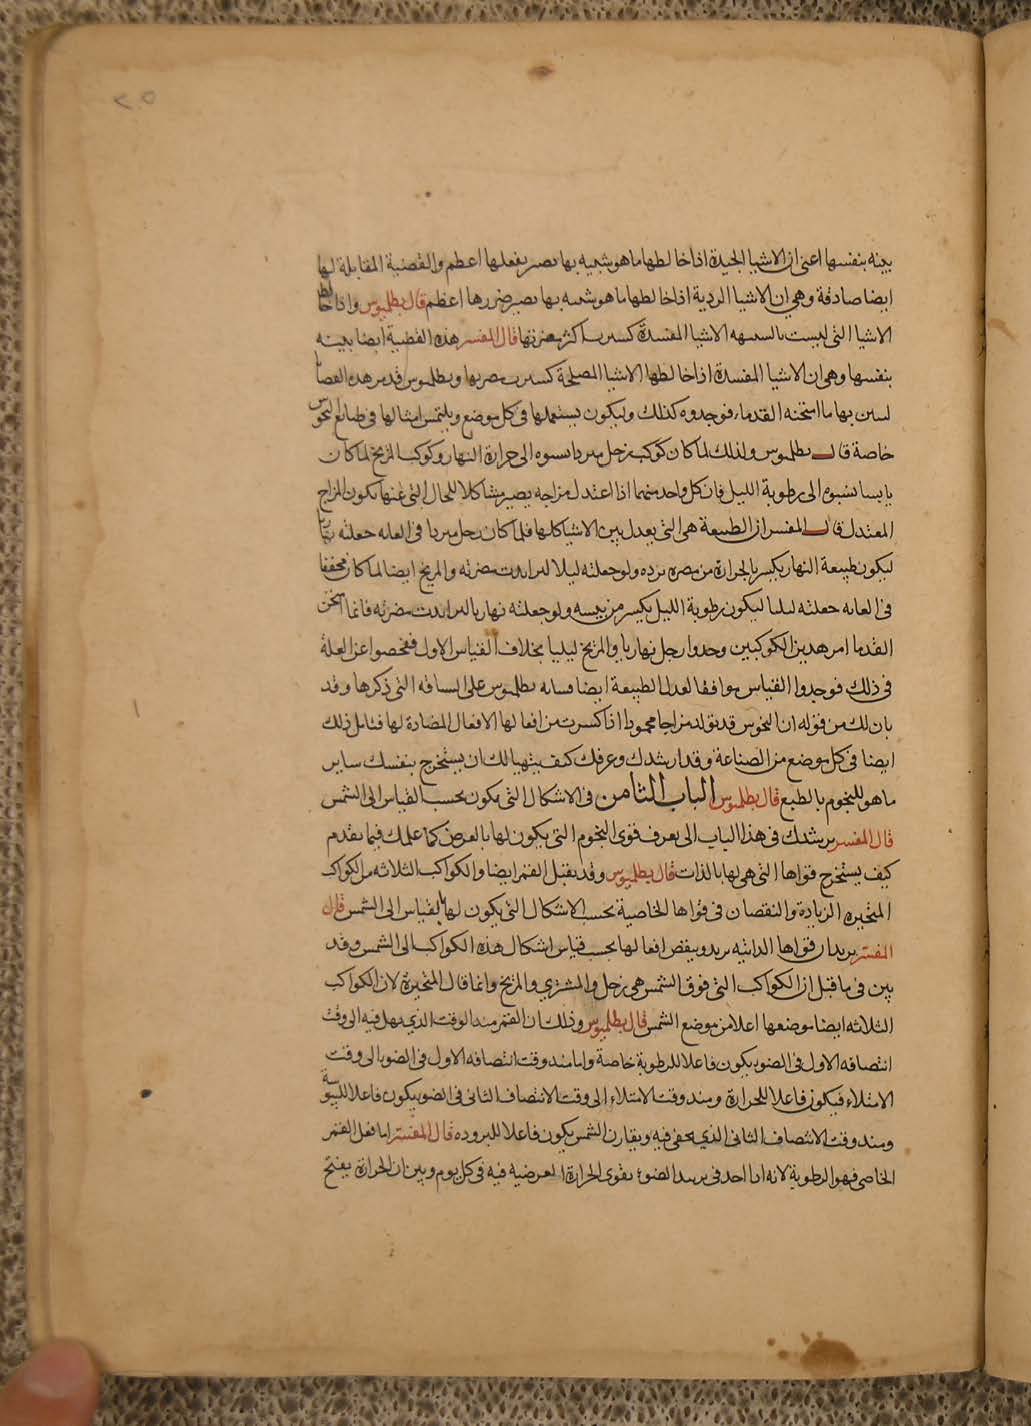 ٢٥
بينه بنفسها اعني ان الاشيا الجيدة اذا خالطها ما هو شبيه بها يصير فعلها اعظم والقضية المقابلة لها
ايضا صادقة وهي ان الاشيا الردية اذا خالطها ما هو شبيه بها يصير ضررها اعظم قال بطلميوس واذا خالط
الاشيا التي ليست بالشبيهه الاشيا المفسدة كسرت اكثر مضرتها قال المفسر هذه القضية ايضا بينه
بنفسها وهي ان الاشيا المفسدة اذا خالطها الاشيا المصلحة كسرت مضرتها وبطلميوس قدم هذه القضا
لتبين بها ما امتحنه القدماء فوجدوه كذلك وليكون يستعملها في كل موضع ويلتمس امثالها في طبائع النحوس
خاصة قال بطلميوس ولذلك لما كان كوكب زحل مبردا نسبوه الى حرارة النهار وكوكب المريخ لما كان
يابسا نسبوه الى رطوبة الليل فان كل واحد منهما اذا اعتدل مزاجه يصير مشاكلا للحال التي عنها يكون المزاج
المعتدل قال المفسر ان الطبيعة هي التي يعدل بين الاشيا كلها فلما كان زحل مبردا في الغايه جعلته نهاريا
ليكون طبيعة النهار يكسر بالحرارة من مضرة برده ولو جعلته ليلا لتزايدت مضرته والمريخ ايضا لما كان مجففا
في الغايه جعلته ليليا ليكون رطوبة الليل يكسر من يبسه ولو جعلته نهاريا لتزايدت مضرته فلما امتحن
القدما امر هذين الكوكبين وجدوا زحل نهاريا والمريخ ليليا بخلاف القياس الاول ففحصوا عن العلة
في ذلك فوجدوا القياس موافقا لعدل الطبيعة ايضا بطلميوس على التي ذكرها وقد
بان لك من قوله ان النحوس قد يتولد مزاجا محمودا اذا كسرت من افعالها الافعال المضادة لها فتامل ذلك
ايضا في كل موضع من الصناعة وقد ارشدك وعرفك كيف يتهيا لك ان يستخرج بنفسك ساير
ما هو للنجوم بالطبع قال بطلميوس الباب الثامن في الاشكال التي يكون بحسب القياس الى الشمس
قال المفسر يرشدك في هذا الباب الى يعرف قوى النجوم التي يكون لها بالعرض كما علمك فيما يقدم
كيف يستخرج قواها التي هي لها بالذات قال بطلميوس وقد يقبل القمر ايضا والكواكب الثلاثه من الكواكب
المتحيره الزيادة والنقصان في قواها الخاصية بحسب الاشكال التي يكون لها بالقياس الى الشمس قال
المفسر يريد ان قواها الذاتيه يزيد وينقص افعالها بحسب قياس اشكال هذه الكواكب الى الشمس وقد
بين في ما قبل ان الكواكب التي فوق الشمس هي زحل والمشتري والمريخ وانما قال المتحيرة لان الكواكب
الثلاثه ايضا موضعها اعلا من موضع الشمس قال بطلميوس وذلك ان القمر منذ الوقت الذي يهل فيه الى وقت
انتصافه الاول في الضو يكون فاعلا للرطوبة خاصة واما منذ وقت انتصافه الاول في الضو الى وقت
الامتلاء فيكون فاعلا للحرارة ومنذ وقت الامتلاء الى وقت الانتصاف الثاني في الضو يكون فاعلا لليبوسة
ومنذ وقت الانتصاف الثاني الذي يخفى فيه ويقارن الشمس يكون فاعلا للبروده قال المفسر اما فعل القمر
الخاصي فهو الرطوبة لانه اذا اخذ في الضوء يقوى الحرارة العرضيه فيه في كل يوم وبين ان الحرارة يفتح